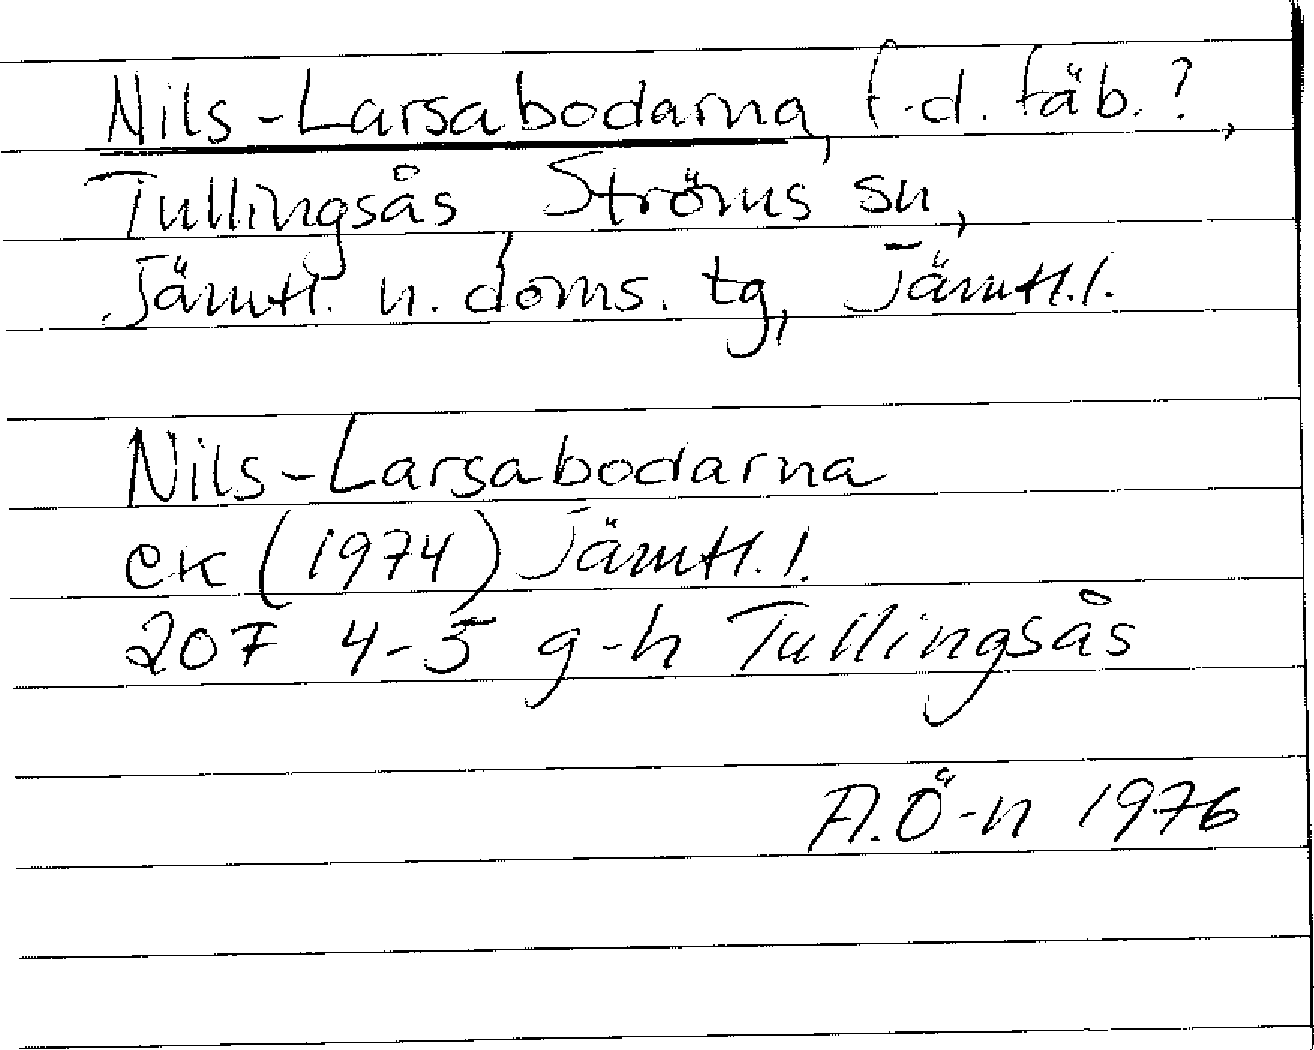 Nils-Larsabodarna, f.d. fäb.?,
Tullingsås, Ströms sn,
Jämtl. n. doms. tg, Jämtl.l.
Nils-Larsabodarna
ek (1974) Jämtl.l.
20F 4-5 g-h Tullingsås
A.Ö-n 1976